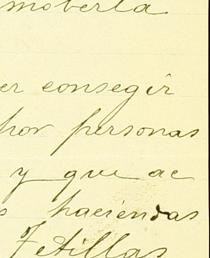 moberla
er consegir
por personas
y que ac
s haciendas
Tetillas